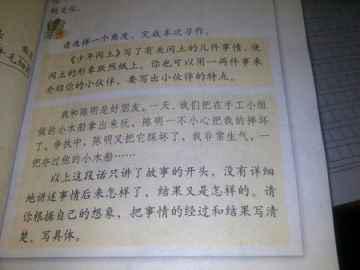 请选择一个角度，完成本次习作。
《少年闰土》写了有关闰土的几件事情，使
闰土的形象跃然纸上。你也可以用一两件事来
介绍你的小伙伴，要写出小伙伴的特点。
我和陈明是好朋友。一天，我们把在手工小组
做的小木船拿出来玩，陈明一不小心把我的摔坏
了。争执中，陈明又把它踩坏了，我非常生气，一
把夺过他的小木船……
以上这段话只讲了故事的开头，没有详细
地讲述事情后来怎样了，结果又是怎样的。请
你根据自己的想象，把事情的经过和结果写清
楚、写具体。